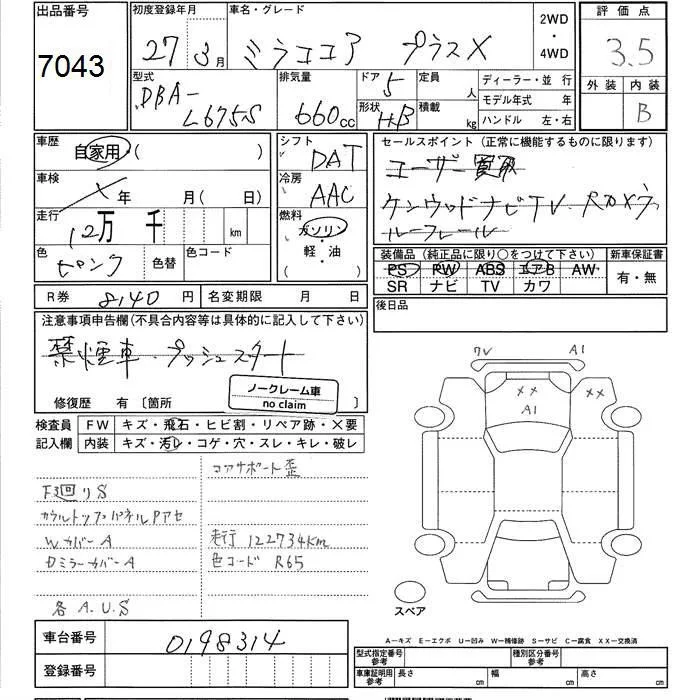 出品番号
7043
初度登録年月
27年3月
車名・グレード
ミラココア プラスX
2WD
・
4WD
評価点
3.5
外装 内装
B
型式
DBA-
L675S
排気量
660cc
ドア
5
形状
HB
定員 人
積載 kg
ディーラー・並行
モデル年式 年
ハンドル 左・右
車歴
自家用 ( )
車検
年 月( 日)
走行
12万 千 km
色
ピンク
色替
色コード
シフト
DAT
冷房
AAC
燃料
ガソリン
・
軽・油
セールスポイント(正常に機能するものに限ります)
ユーザー買取
ケンウッドナビTV
ルーフレール
装備品(純正品に限り○をつけて下さい)
PS PW ABS エアB AW
SR ナビ TV カワ
新車保証書
有・無
後日品
R券 8140 円
名変期限 月 日
注意事項申告欄(不具合内容等は具体的に記入して下さい)
禁煙車・プッシュスタート
修復歴 有 〔箇所 〕
ノークレーム車
no claim
検査員
記入欄
FW キズ・飛石・ヒビ割・リペア跡・×要
内装 キズ・汚レ・コゲ・穴・スレ・キレ・破レ
コアサポート歪
F廻りS
カウルトップパネルPアセ
WカバーA
DミラーカバーA
各A.U.S
走行 122734km
色コード R65
A1
××
A1
××
スペア
A−キズ E−エクボ U−凹み W−補修跡 S−サビ C−腐食 XX−交換済
車台番号 0198314
登録番号
型式指定番号
参考
種別区分番号
参考
車庫証明用
参考
長さ cm
幅 cm
高さ cm